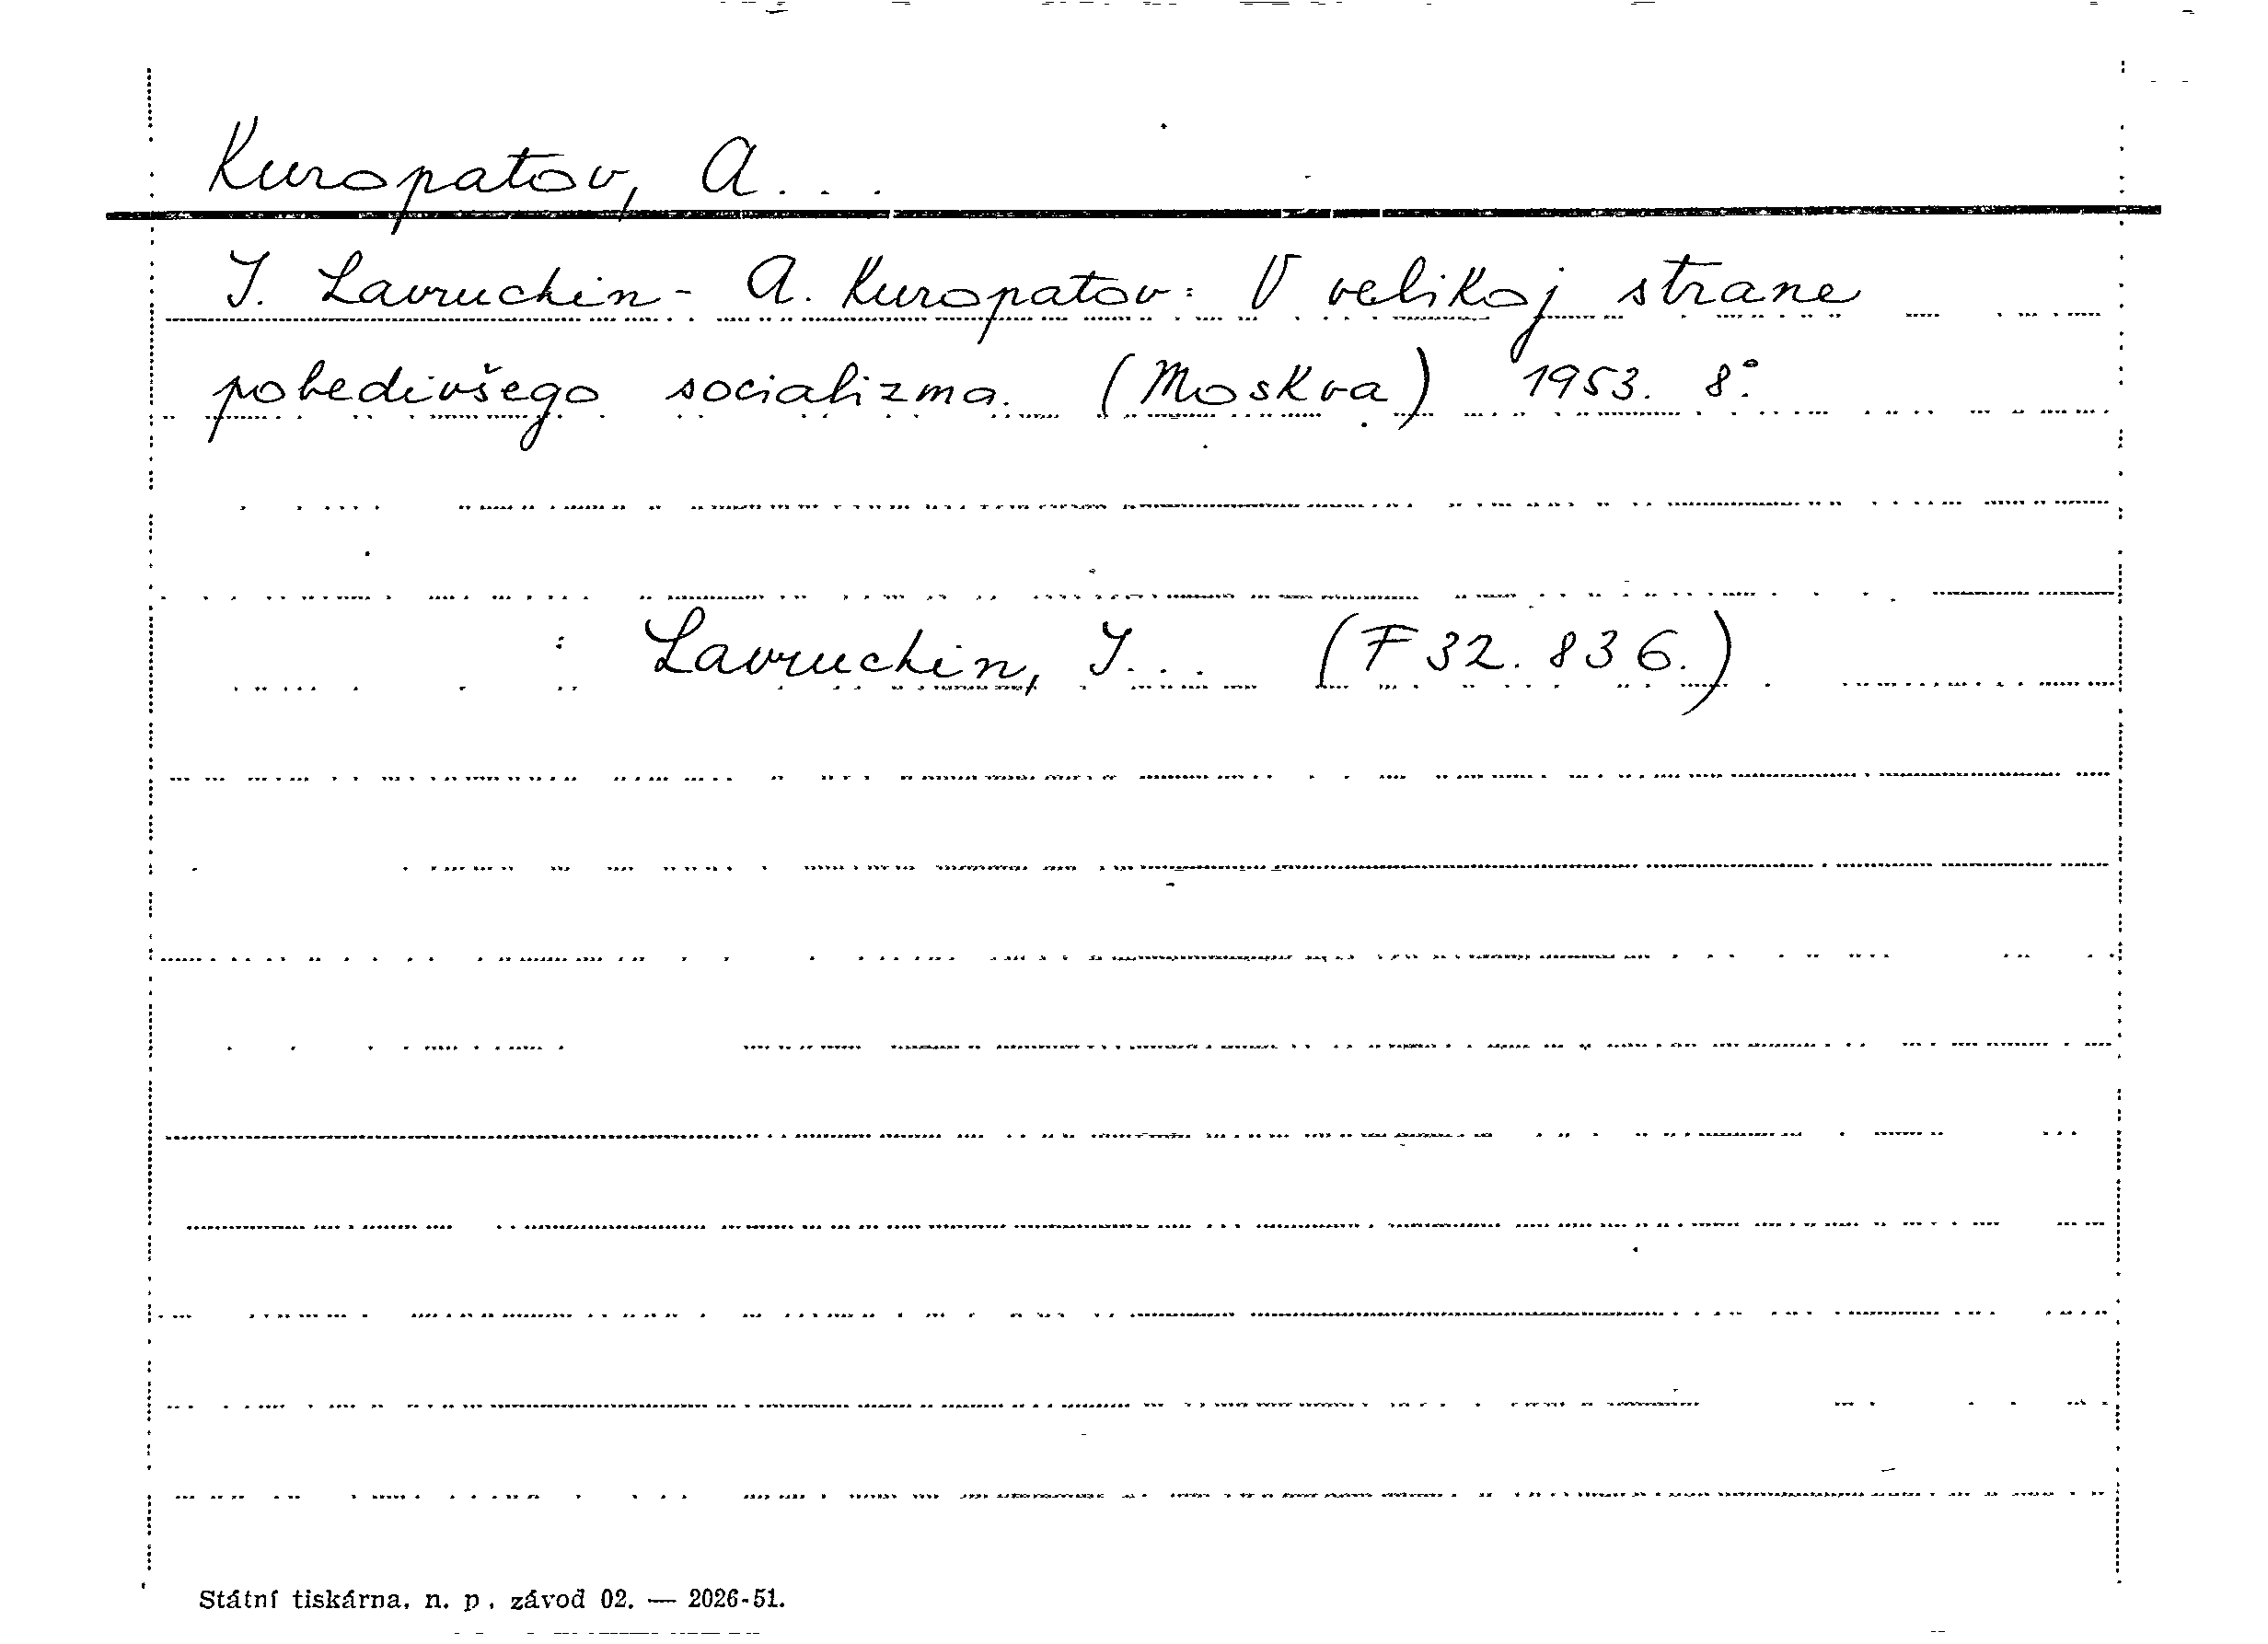 Kuropatov, A...
I. Lavruchin - A. Kuropatov: V velikoj strane
pobedivšego socializma. (Moskva) 1953. 8°.
: Lavruchin, I... (F 32.836.)
Státní tiskárna, n. p., závod 02. — 2026-51.